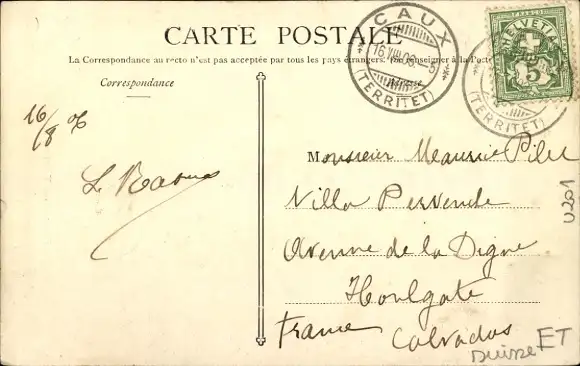 CARTE POSTALE
La Correspondance au recto n'est pas acceptée par tous les pays étrangers. Se renseigner à la Poste
Correspondance
Adresse
CAUX
16.VIII.06.
(TERRITET)
(TERRITET)
HELVETIA
5
16/8 06
Monsieur Maurice
Villa Pervenche
Avenue de la Digue
Houlgate
France Calvados
Suisse ET
U201